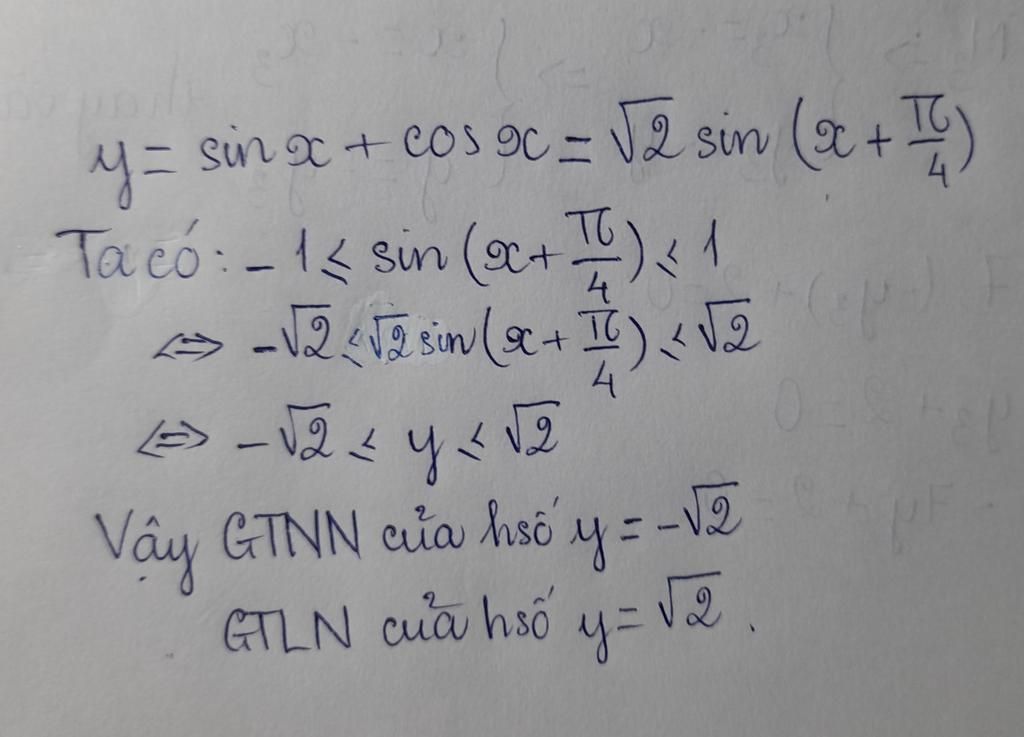 y = sin x + cos x = √2 sin (x + π/4)
Ta có: -1 ≤ sin (x + π/4) ≤ 1
⇔ -√2 ≤ √2 sin (x + π/4) ≤ √2
⇔ -√2 ≤ y ≤ √2
Vậy GTNN của hsố y = -√2
GTLN của hsố y = √2 .